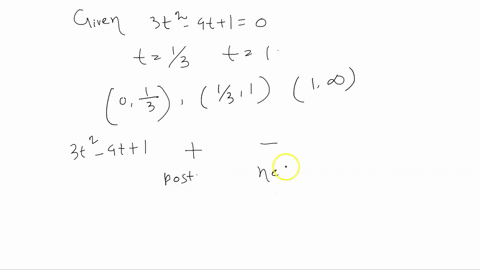 Given 3t² - 4t + 1 = 0
t = 1/3 t = 1.
(0, 1/3), (1/3, 1) (1, ∞)
3t² - 4t + 1 + -
post. ne